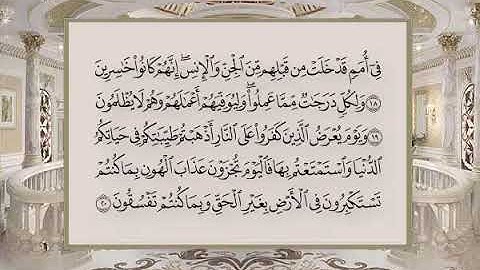 فِىٓ أُمَمٍ قَدْ خَلَتْ مِن قَبْلِهِم مِّنَ ٱلْجِنِّ وَٱلْإِنسِ ۖ إِنَّهُمْ كَانُوا۟ خَٰسِرِينَ
١٨ وَلِكُلٍّ دَرَجَٰتٌ مِّمَّا عَمِلُوا۟ ۖ وَلِيُوَفِّيَهُمْ أَعْمَٰلَهُمْ وَهُمْ لَا يُظْلَمُونَ
١٩ وَيَوْمَ يُعْرَضُ ٱلَّذِينَ كَفَرُوا۟ عَلَى ٱلنَّارِ أَذْهَبْتُمْ طَيِّبَٰتِكُمْ فِى حَيَاتِكُمُ
ٱلدُّنْيَا وَٱسْتَمْتَعْتُم بِهَا فَٱلْيَوْمَ تُجْزَوْنَ عَذَابَ ٱلْهُونِ بِمَا كُنتُمْ
تَسْتَكْبِرُونَ فِى ٱلْأَرْضِ بِغَيْرِ ٱلْحَقِّ وَبِمَا كُنتُمْ تَفْسُقُونَ ٢٠